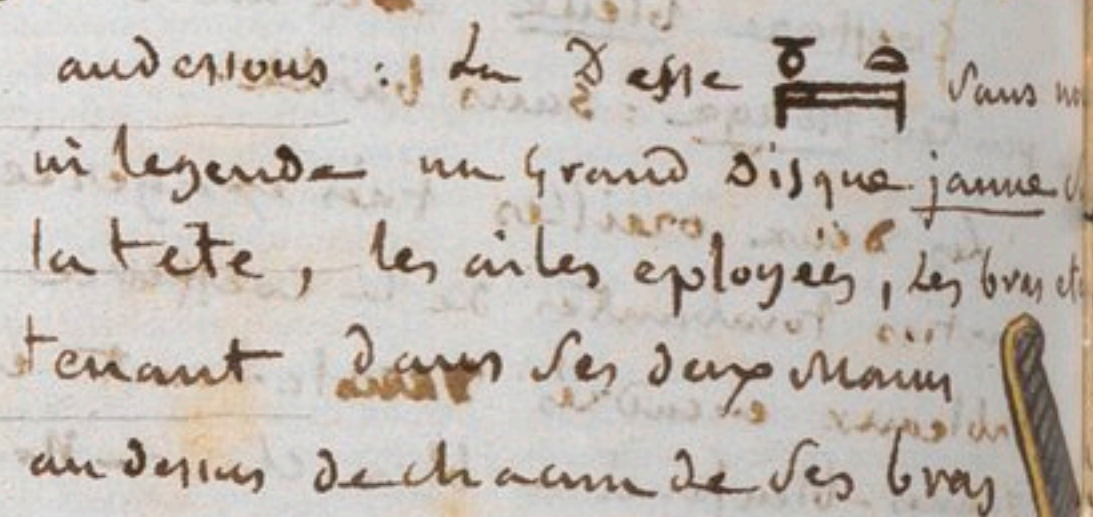 audessous : La Desse sans
ni legende un Grand Disque jaune
la tete, les ailes eployées, les bras
tenant dans ses deux Mains
au dessus de chacun de ses bras